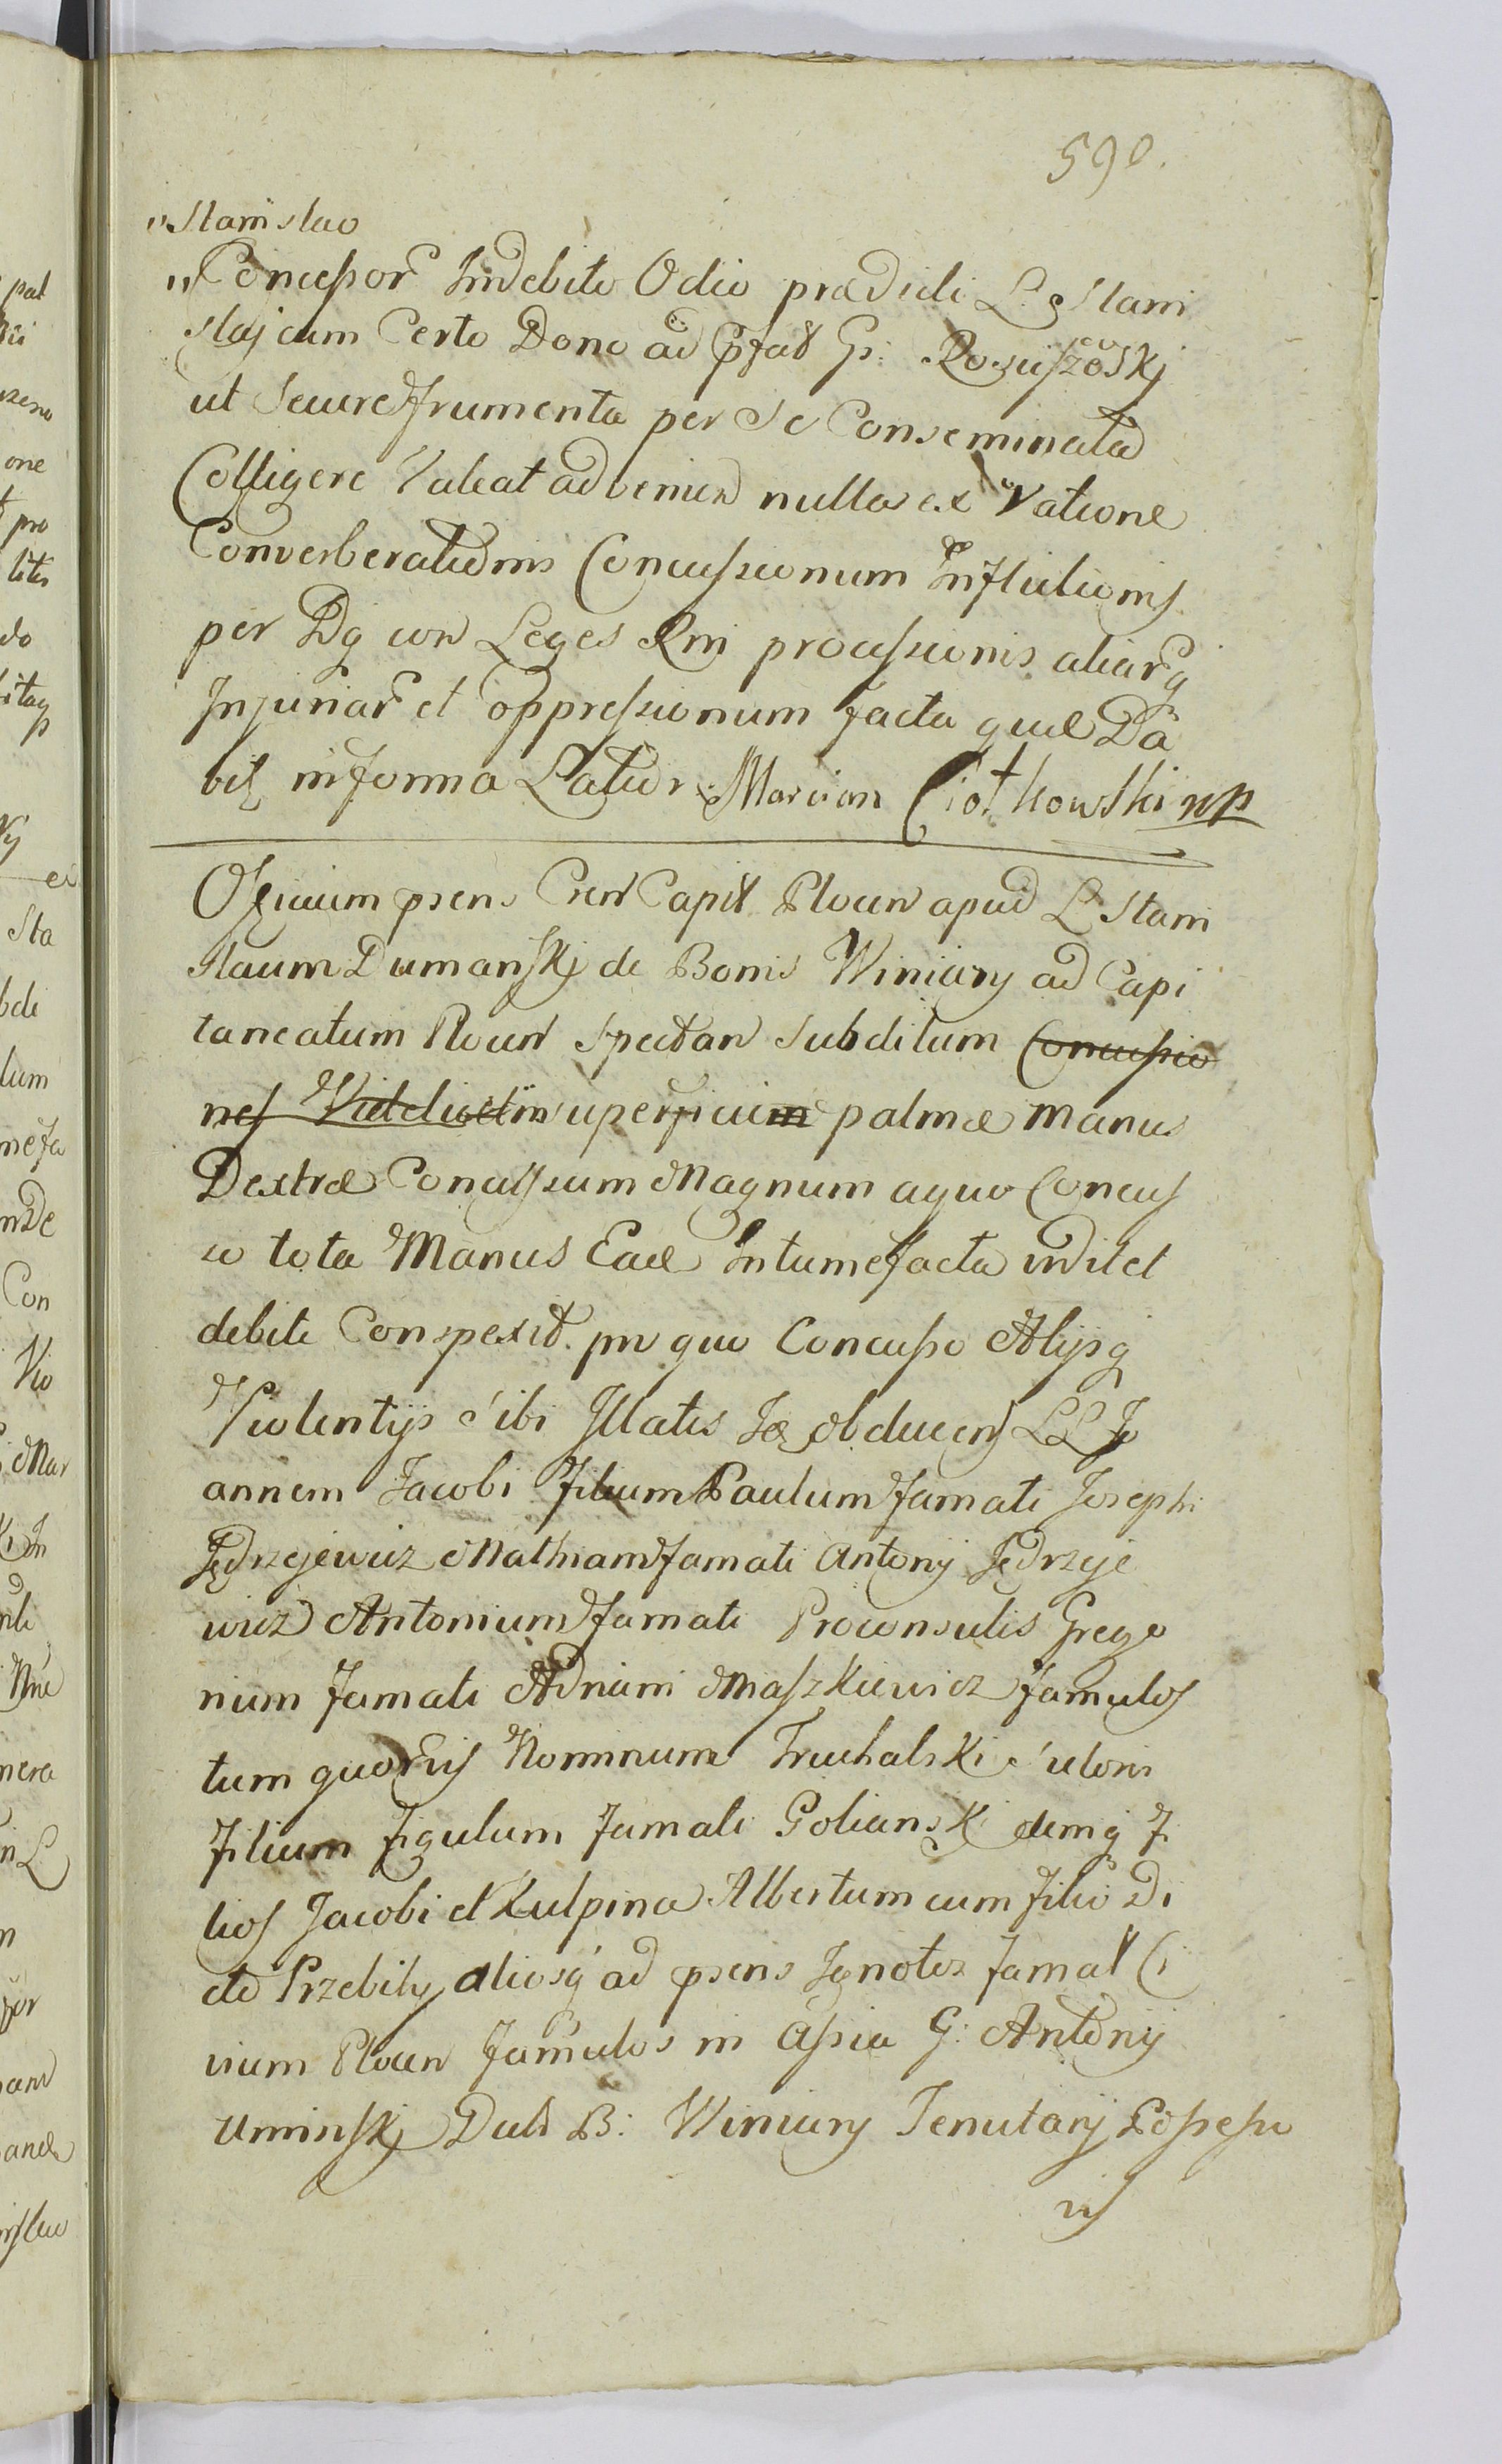 590.
"Stanislao
"Concussor Indebito Odio prædicti L. Stani
slaj cum Certo Dono ad Gr: Rosciszewskj
ut Secure frumenta per Se Conseminata
Colligere Valeat advenien nulla ex ratione
Converberationis Concussionum Inflictionis
per Dg con Leges Rni processionis aliarq
Injuriar et oppressionum facta quæ Da
bit in forma Lator Marcian Ciołkowski mp
Officium præsens Cren Capit Plocen apud L. Stani
slaum Dumanskj de Bonis Winiary ad Capi
taneatum Plocen Spectan Subditum Concussio
nes Videlicet in superficium palmæ manus
Dextræ Concussum Magnum a quo Concus
so tota Manus Eade Intumefacta vidit et
debite Conspexit. pro quo Concusso Alijsq
Violentijs sibi Illatis Ide obducens LL Jo
annem Jacobi Filium Paulum famati Josephi
Jędrzejewicz Mathiam famati Antonij Jędrzeje
wicz Antonium famati Proconsulis Grego
rium famati Adriani Maszkiewicz famulos
tum quorvis Nominum Truchalski Sutoris
Filium Figulum famati Polianski demq Fi
lios Jacobi et Kulpina Albertum cum filio Di
cto Przebity aliosq ad præsens Ignotos famat Ci
vium Plocen famulos in Assia G: Antonij
Uminskj Dict B: Winiary Tenutarij Possessio
nis